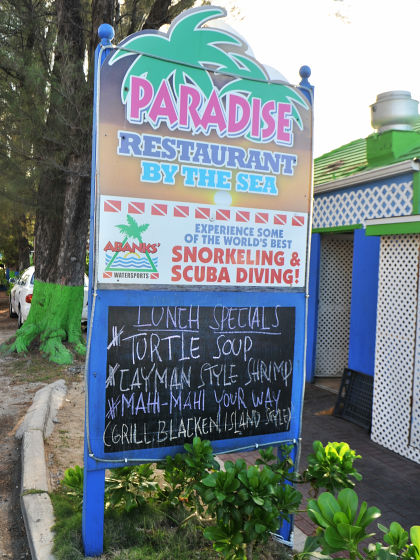 PARADISE
RESTAURANT
BY THE SEA
ABANKS'
WATERSPORTS
EXPERIENCE SOME
OF THE WORLD'S BEST
SNORKELING &
SCUBA DIVING!
LUNCH SPECIALS
* TURTLE SOUP
* CAYMAN STYLE SHRIMP
* MAHI-MAHI YOUR WAY
(GRILL, BLACKEN, ISLAND STYLE)